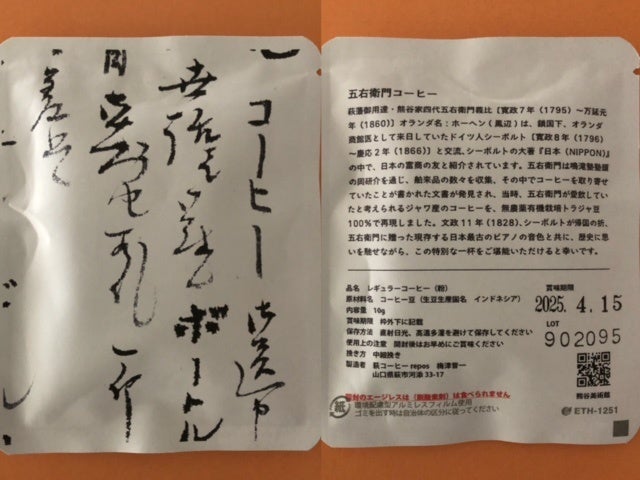 コーヒー
ボートル
五右衛門コーヒー
萩藩御用達・熊谷家四代五右衛門義比〔寛政7年（1795）～万延元
年（1860)〕オランダ名：ホーヘン（風辺）は、鎖国下、オランダ
商館医として来日していたドイツ人シーボルト〔寛政8年（1796）
～慶応2年（1866）〕と交流、シーボルトの大著『日本（NIPPON)』
の中で、日本の富商の友と紹介されています。五右衛門は鳴滝塾塾頭
の岡研介を通じ、舶来品の数々を収集、その中でコーヒーを取り寄せ
ていたことが書かれた文書が発見され、当時、五右衛門が愛飲してい
たと考えられるジャワ産のコーヒーを、無農薬有機栽培トラジャ豆
100％で再現しました。文政11年（1828）、シーボルトが帰国の折、
五右衛門に贈った現存する日本最古のピアノの音色と共に、歴史に思
いを馳せながら、この特別な一杯をご堪能いただけると幸いです。
品名 レギュラーコーヒー（粉）
原材料名 コーヒー豆（生豆生産国名 インドネシア）
内容量 10g
賞味期限 枠外下に記載
保存方法 直射日光、高温多湿を避けて保存してください
使用上の注意 開封後はお早めにご賞味ください
挽き方 中細挽き
製造者 萩コーヒーrepos 梅津晋一
山口県萩市河添33-17
賞味期限
2025.4.15
LOT
902095
熊谷美術館
ETH-1251
同封のエージレスは（脱酸素剤）は食べられません
紙
環境配慮型アルミレスフィルム使用
ゴミを出す時は自治体の区分に従ってください